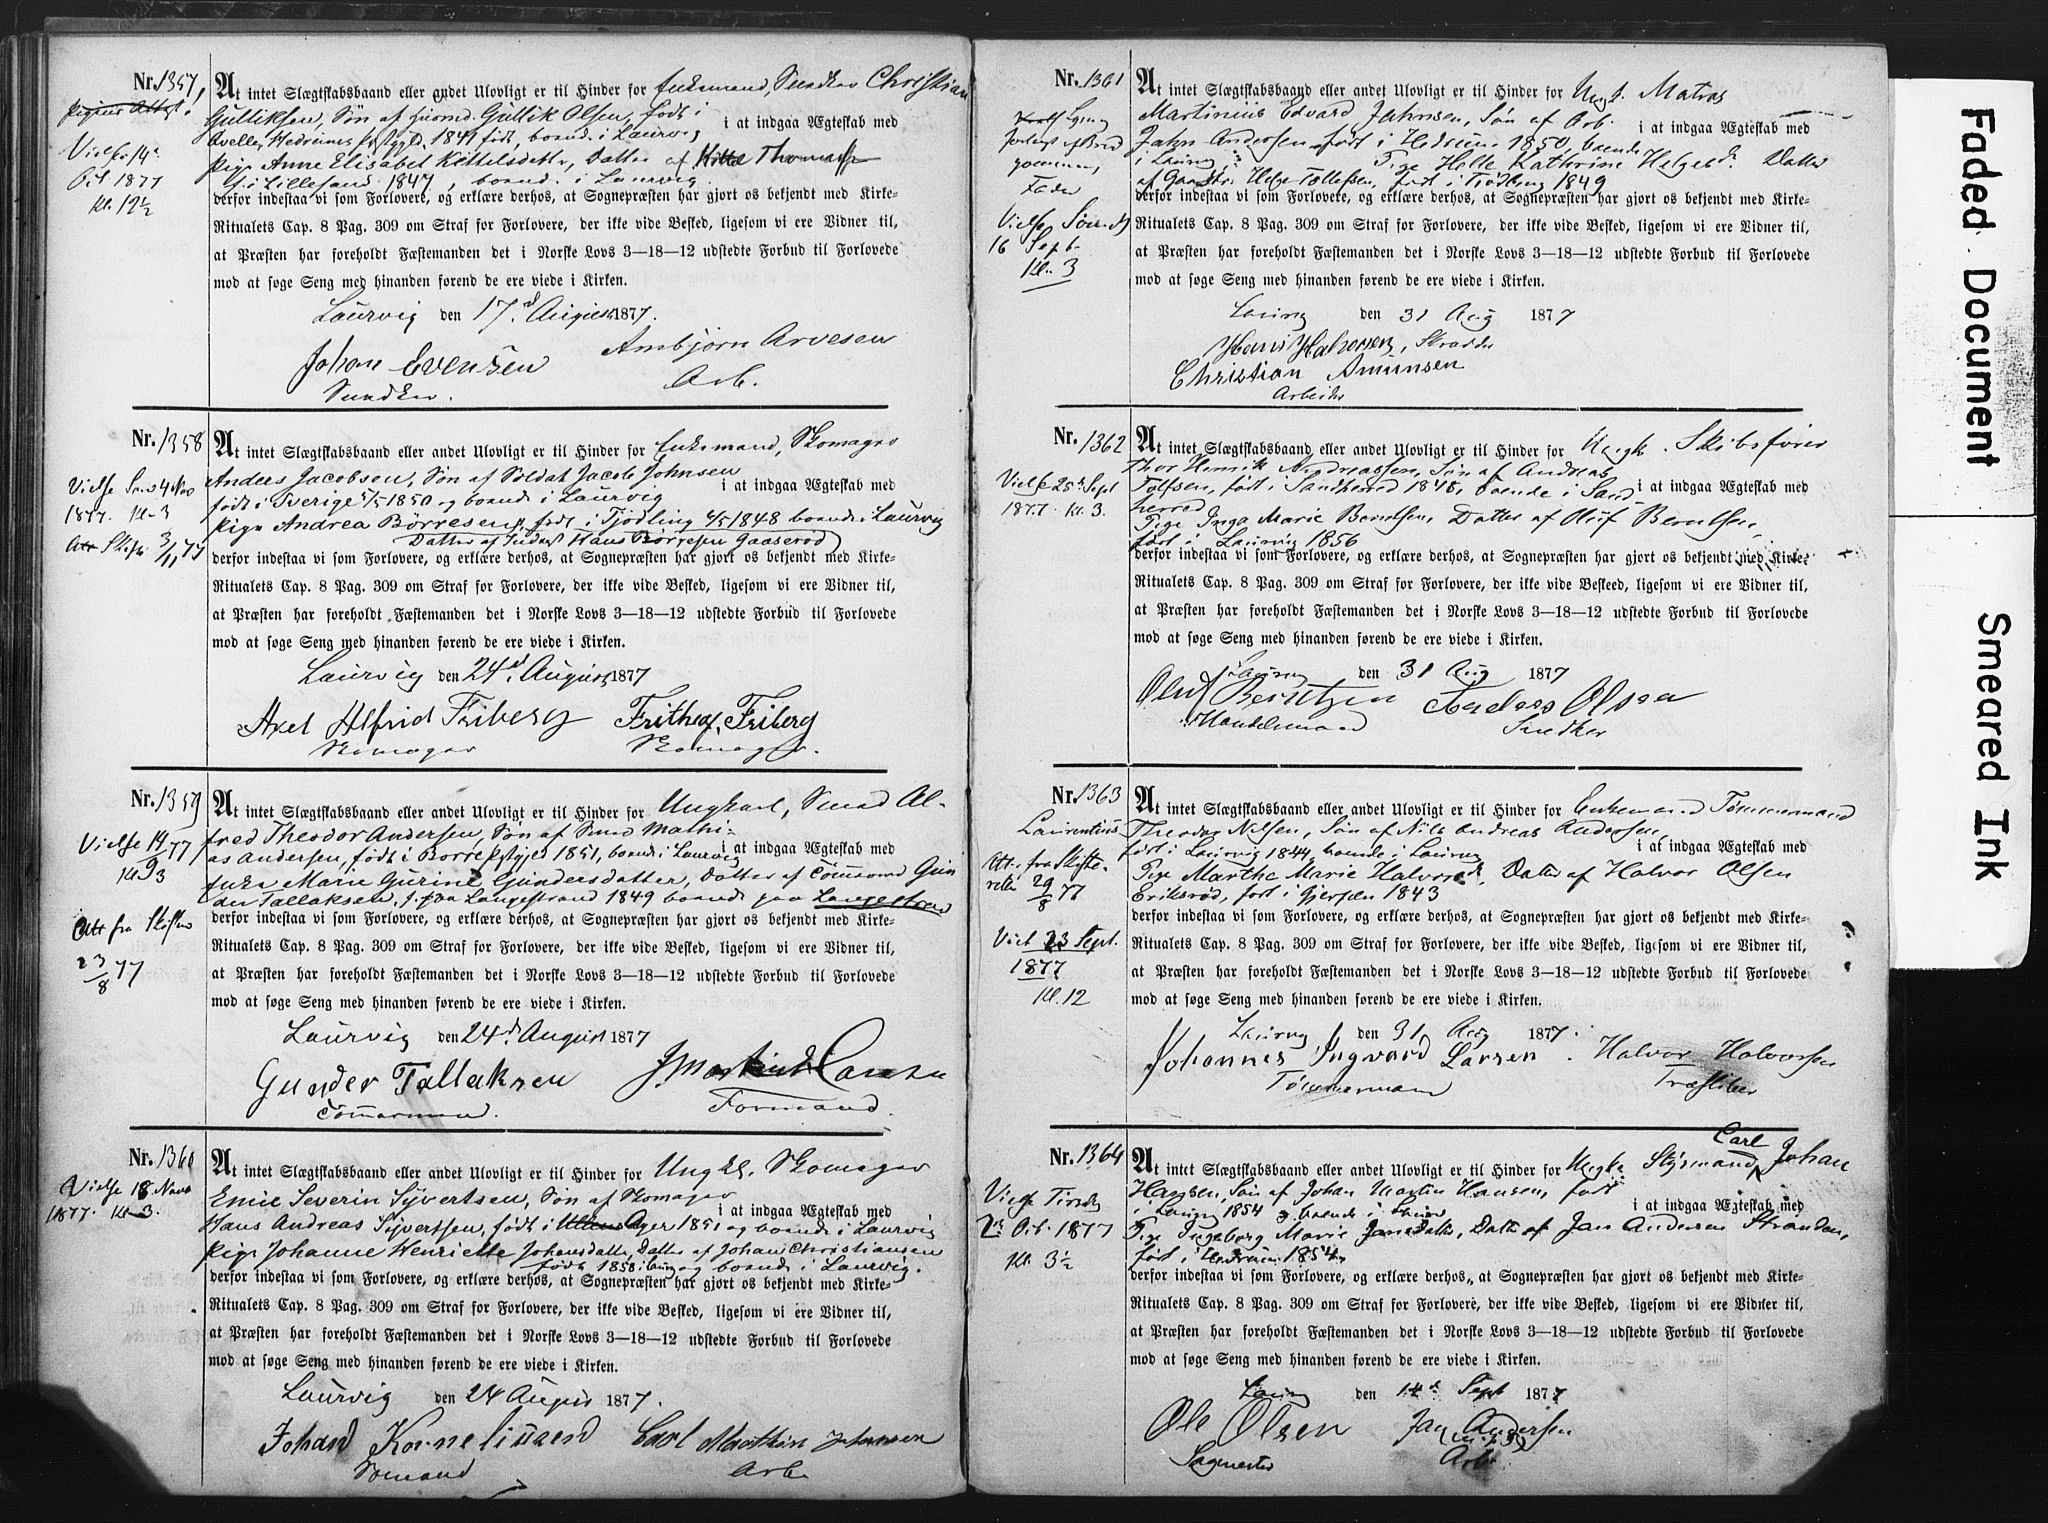 Nr. 1357,
At intet Slægtskabsbaand eller andet Ulovligt er til Hinder for Enkemand, Snedker Christian
Gulliksen, Søn af Gullik Olsen, født i
Hedrums 1841 født, boende i Laurvig i at indgaa Ægteskab med
Pige Anne Elisabet Kittelsdatter, Datter af
f. i Lillesand 1847, boende i Laurvig
Pigens Attest
Vielse 14
Oct 1877
Kl. 12½
derfor indestaa vi som Forlovere, og erklære derhos, at Sognepræsten har gjort os bekjendt med Kirke-
Ritualets Cap. 8 Pag. 309 om Straf for Forlovere, der ikke vide Besked, ligesom vi ere Vidner til,
at Præsten har foreholdt Fæstemanden det i Norske Lovs 3—18—12 udstedte Forbud til Forlovede
mod at søge Seng med hinanden førend de ere viede i Kirken.
Laurvig den 17d August 1877.
Johan Evensen Ambjørn Arvesen
Snedker. Arb.
Nr. 1358
At intet Slægtskabsbaand eller andet Ulovligt er til Hinder for Enkemand, Skomager
Anders Jacobsen, Søn af Soldat Jacob Johnsen
født i Sverige 5/5 1850 og boende i Laurvig i at indgaa Ægteskab med
Pige Andrea Børresen, født i Tjødling 4/5 1848 boende i Laurvig
Datter af Hans Børresen Gaaserød
Vielse 4 Nov
1877. Kl. 3
3/11 77
derfor indestaa vi som Forlovere, og erklære derhos, at Sognepræsten har gjort os bekjendt med Kirke-
Ritualets Cap. 8 Pag. 309 om Straf for Forlovere, der ikke vide Besked, ligesom vi ere Vidner til,
at Præsten har foreholdt Fæstemanden det i Norske Lovs 3—18—12 udstedte Forbud til Forlovede
mod at søge Seng med hinanden førend de ere viede i Kirken.
Laurvig den 24d August 1877
Axel Alfrid Friberg Frithjof Friberg
Skomager Skomager.
Nr. 1359
At intet Slægtskabsbaand eller andet Ulovligt er til Hinder for Ungkarl, Smed Al-
fred Theodor Andersen, Søn af Smed Mathi-
as Andersen, født i Borre 1851, boende i Laurvig i at indgaa Ægteskab med
Enke Marie Gurine Gundersdatter, Datter af Tømmermd Gun
der Tallaksen, f. paa Langestrand 1849 boende paa Langestrand
Vielse 14/9 77
Kl. 3
Att fra Skiften
23/8 77
derfor indestaa vi som Forlovere, og erklære derhos, at Sognepræsten har gjort os bekjendt med Kirke-
Ritualets Cap. 8 Pag. 309 om Straf for Forlovere, der ikke vide Besked, ligesom vi ere Vidner til,
at Præsten har foreholdt Fæstemanden det i Norske Lovs 3—18—12 udstedte Forbud til Forlovede
mod at søge Seng med hinanden førend de ere viede i Kirken.
Laurvig den 24d August 1877
Gunder Tallaksen
Tømmermand. Formand.
Nr. 1360
At intet Slægtskabsbaand eller andet Ulovligt er til Hinder for Ungkl. Skomager
Emil Severin Syvertsen, Søn af Skomager
Hans Andreas Syvertsen, født i Ager 1851 og boende i Laurvig i at indgaa Ægteskab med
Pige Johanne Henriette Johansdatter, Datter af Johan Christiansen
født 1858 i Laurvig og boende i Laurvig.
Vielse 18 Novb
1877. Kl. 3.
derfor indestaa vi som Forlovere, og erklære derhos, at Sognepræsten har gjort os bekjendt med Kirke-
Ritualets Cap. 8 Pag. 309 om Straf for Forlovere, der ikke vide Besked, ligesom vi ere Vidner til,
at Præsten har foreholdt Fæstemanden det i Norske Lovs 3—18—12 udstedte Forbud til Forlovede
mod at søge Seng med hinanden førend de ere viede i Kirken.
Laurvig den 24 August 1877.
Johan Korneliusen Carl Mathin Johansen
Sømand Arb
Nr. 1361
At intet Slægtskabsbaand eller andet Ulovligt er til Hinder for Ungk. Matros
Martinius Edvard Jahnsen, Søn af Arb.
Jahn Andersen født i Hedrum 1850, boende i at indgaa Ægteskab med
i Laurvig Pige Helle Kathrine Helgesd. Datter
af Helge Tollefsen, født i Tjødling 1849
Vielse Sønd
16 Sept
Kl. 3
derfor indestaa vi som Forlovere, og erklære derhos, at Sognepræsten har gjort os bekjendt med Kirke-
Ritualets Cap. 8 Pag. 309 om Straf for Forlovere, der ikke vide Besked, ligesom vi ere Vidner til,
at Præsten har foreholdt Fæstemanden det i Norske Lovs 3—18—12 udstedte Forbud til Forlovede
mod at søge Seng med hinanden førend de ere viede i Kirken.
Laurvig den 31 Aug 1877
Hans Halvorsen, Skrædder
Christian Amunsen
Arbeider
Nr. 1362
At intet Slægtskabsbaand eller andet Ulovligt er til Hinder for Ungk. Skibsfører
Thor Henrik Andreassen, Søn af Andreas
Tolfsen, født i Sandherred 1848, boende i Sand- i at indgaa Ægteskab med
herred
Pige Inga Marie Berntsen, Datter af Oluf Berntsen,
født i Laurvig 1856
Vielse 25d Sept
1877 Kl. 3.
derfor indestaa vi som Forlovere, og erklære derhos, at Sognepræsten har gjort os bekjendt med Kirke-
Ritualets Cap. 8 Pag. 309 om Straf for Forlovere, der ikke vide Besked, ligesom vi ere Vidner til,
at Præsten har foreholdt Fæstemanden det i Norske Lovs 3—18—12 udstedte Forbud til Forlovede
mod at søge Seng med hinanden førend de ere viede i Kirken.
Laurvig den 31 Aug 1877
Oluf Berntzen Anders Olsen
Handelsmand Snedker
Nr. 1363
At intet Slægtskabsbaand eller andet Ulovligt er til Hinder for Enkemand Tømmermand
Theodor Nilsen, Søn af Nils Andreas Andersen
født i Laurvig 1844, boende i Laurvig i at indgaa Ægteskab med
Pige Marthe Marie Halvorsd., Datter af Halvor Olsen
Eriksrød, født i Gjerpen 1843
Laurentius
Att. fra Skifte-
retten 29/8 77
Viet 23 Sept.
1877
Kl. 12
derfor indestaa vi som Forlovere, og erklære derhos, at Sognepræsten har gjort os bekjendt med Kirke-
Ritualets Cap. 8 Pag. 309 om Straf for Forlovere, der ikke vide Besked, ligesom vi ere Vidner til,
at Præsten har foreholdt Fæstemanden det i Norske Lovs 3—18—12 udstedte Forbud til Forlovede
mod at søge Seng med hinanden førend de ere viede i Kirken.
Laurvig den 31 Aug 1877.
Johannes Ingvard Larsen. Halvor Halvorsen
Tømmermand Træsliber
Nr. 1364
At intet Slægtskabsbaand eller andet Ulovligt er til Hinder for Ungk. Styrmand Carl Johan
Hansen, Søn af Johan Martin Hansen, født
i Laurvig 1854 boende i i at indgaa Ægteskab med
Pige Ingeborg Marie Jansdatter, Datter af Jan Andersen Stranden,
født i Hedrum 1854
Vielse Tirsdag
2den Oct. 1877
Kl. 3½
derfor indestaa vi som Forlovere, og erklære derhos, at Sognepræsten har gjort os bekjendt med Kirke-
Ritualets Cap. 8 Pag. 309 om Straf for Forlovere, der ikke vide Besked, ligesom vi ere Vidner til,
at Præsten har foreholdt Fæstemanden det i Norske Lovs 3—18—12 udstedte Forbud til Forlovede
mod at søge Seng med hinanden førend de ere viede i Kirken.
Laurvig den 14d Sept 1877
Ole Olsen Jan Andersen
Sagmester Arb
Faded Document
Smeared Ink